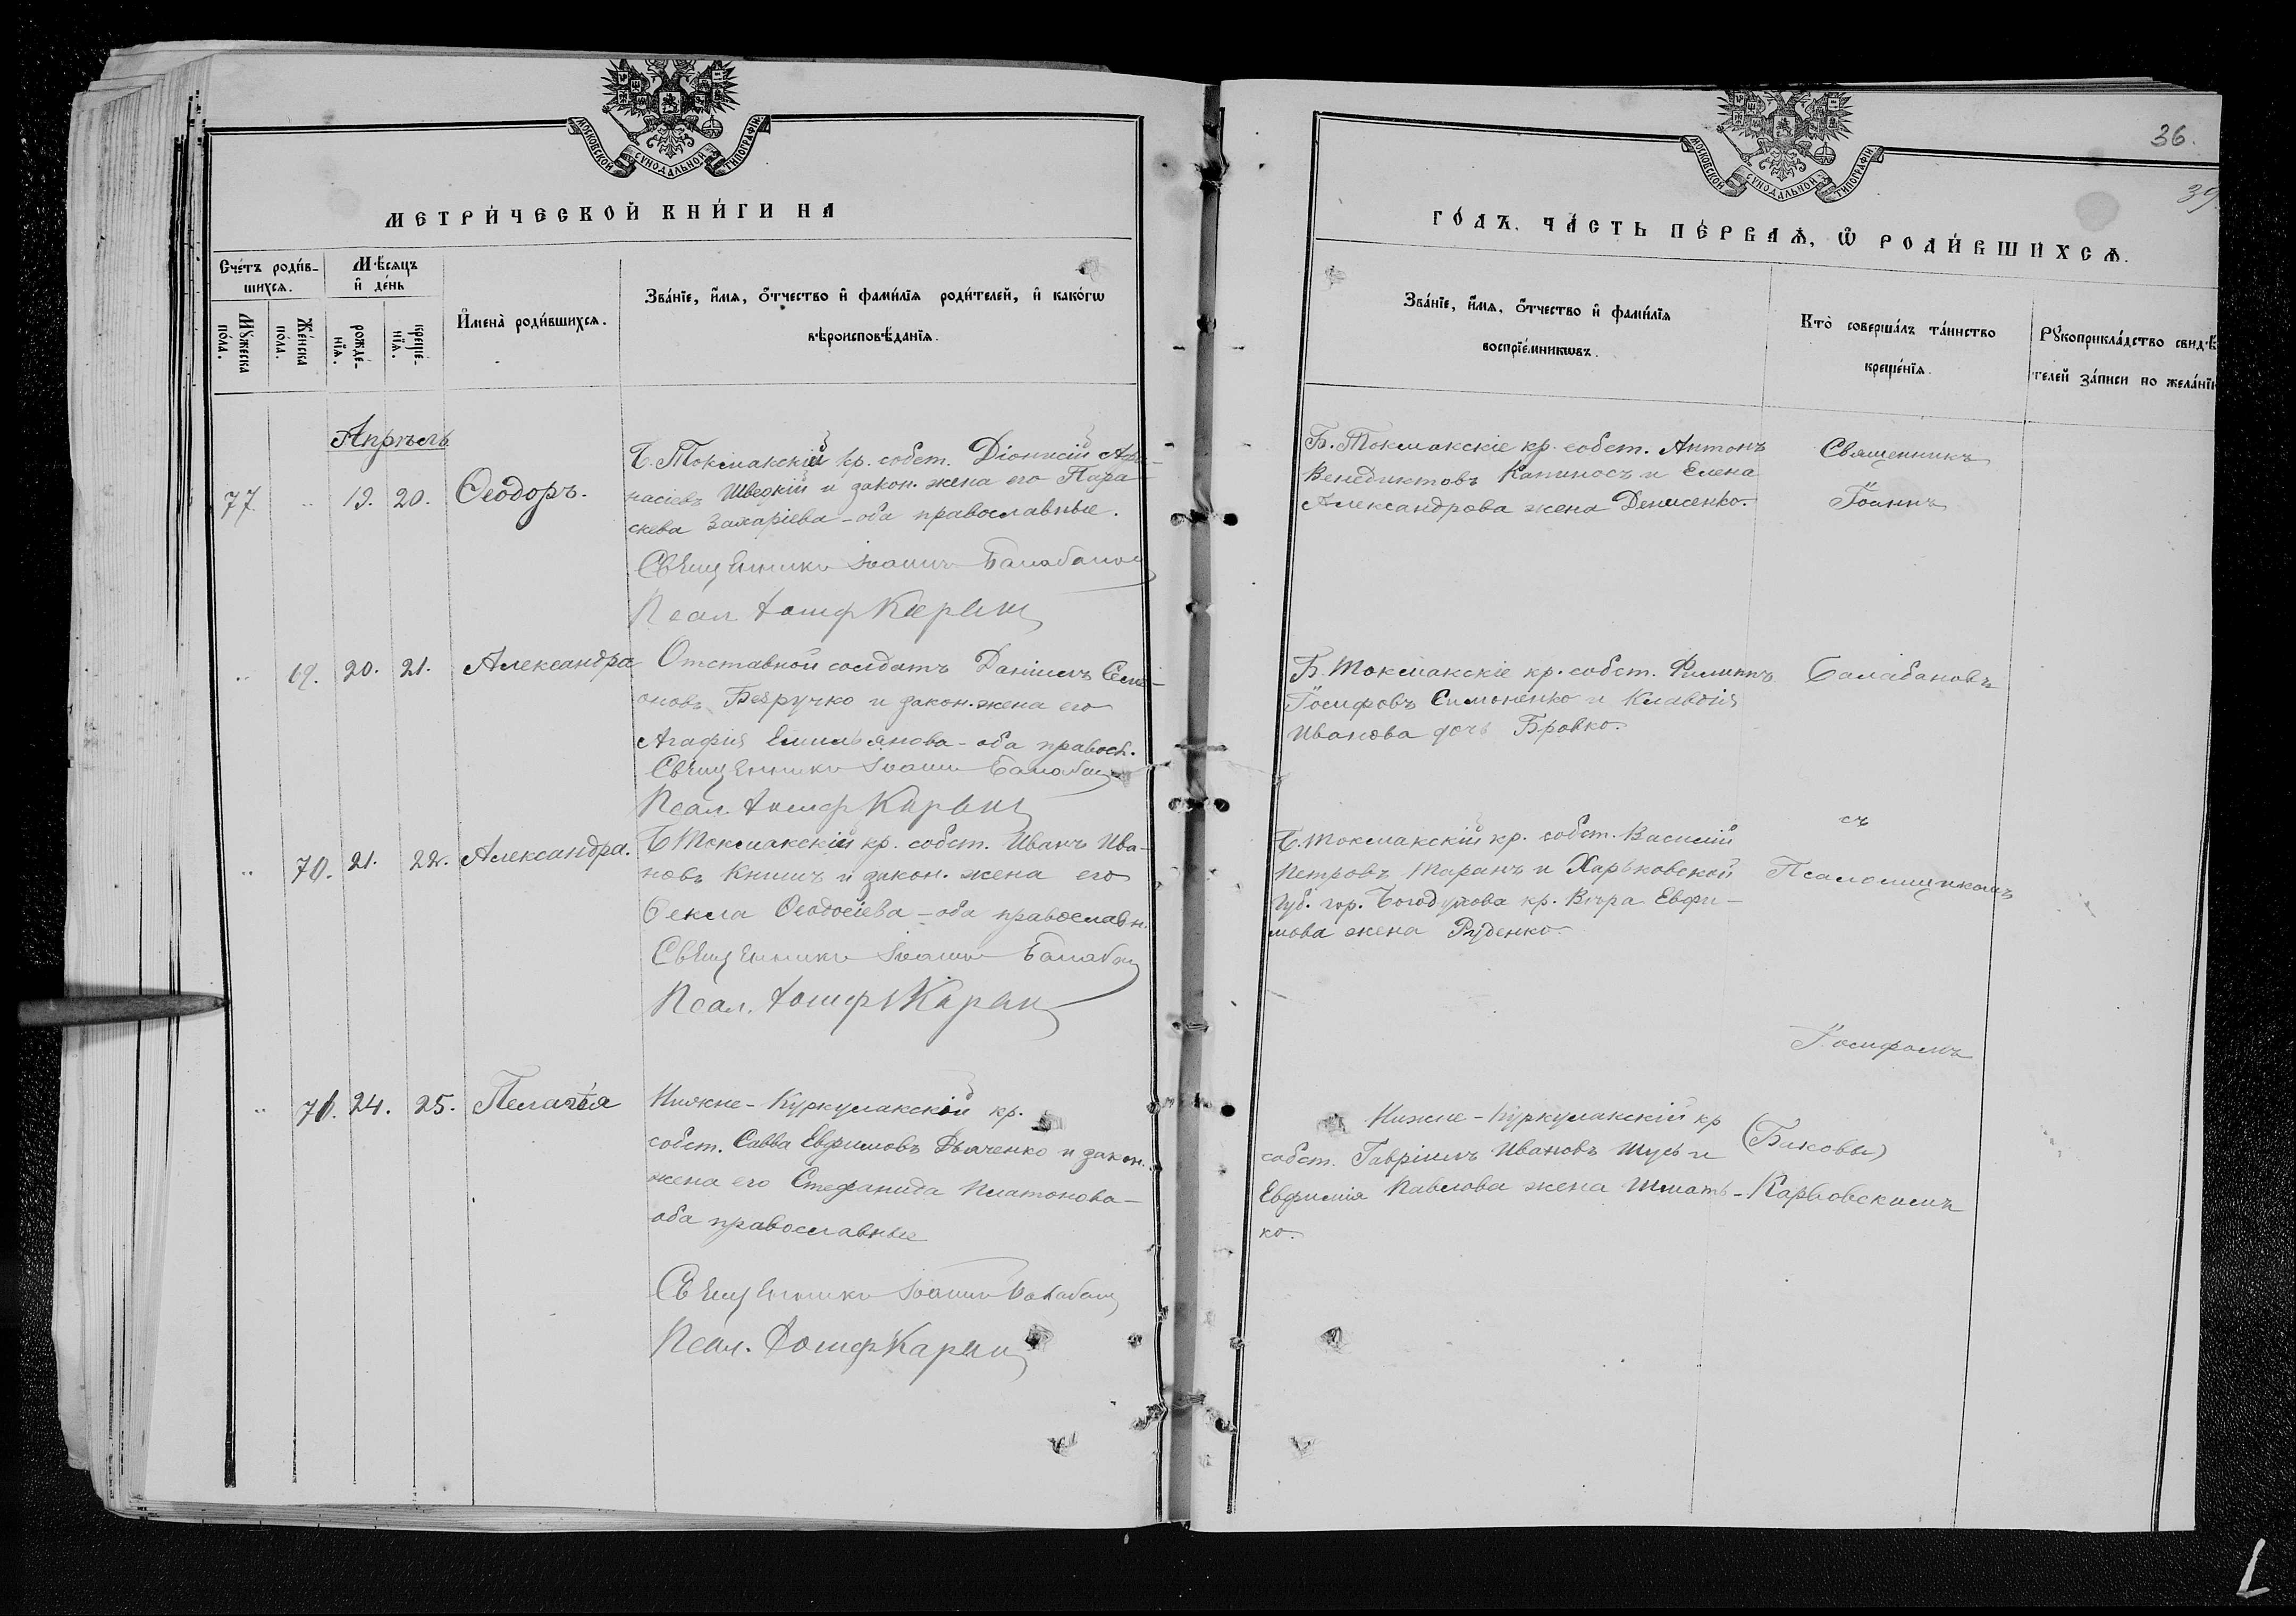 МОСКОВСКОЙ СУНОДАЛЬНОЙ ТИПОГРАФІИ
МЕТРИ́ЧЕСКОЙ КНИ́ГИ НА
Сче́тъ роди́в-
шихся.
Мѣ́сяцъ
и҆ де́нь
Мꙋ́жеска
по́ла.
Же́нска
по́ла.
рожде́-
нїѧ.
креще́-
нїѧ.
И҆мена̀ роди́вшихсѧ.
Зва́нїе, и҆́мѧ, ѻ҆́тчество и҆ фами́лїѧ роди́телей, и҆ како́гѡ
вѣроисповѣ́данїѧ.
Апрѣль
77. 19. 20. Ѳеодоръ.
Б. Токмакскій кр. собст. Діонисій Афа-
насіевъ Шведкій и закон. жена его Пара-
скева Захаріева - оба православные.
Священникъ Іоаннъ Балабановъ
Псал. Іосиф Карвы
19. 20. 21. Александра
Отставной солдатъ Даніилъ Семе-
оновъ Безручко и закон. жена его
Агафія Емильянова - оба правосл.
Священникъ Іоаннъ Балабан
Псал. Іосиф Карвы
70. 21. 22. Александра.
Б Токмакскій кр. собст. Иванъ Ива-
новъ Книшъ и закон. жена его
Ѳекла Ѳеодосіева - оба православн.
Священникъ Іоаннъ Балабан
Псал. Іосиф Карвы
71. 24. 25. Пелагія
Нижне-Куркулакскій кр.
собст. Савва Евфимовъ Дьяченко и закон.
жена его Стефанида Платонова -
оба православные
Священникъ Іоаннъ Балабан
Псал. Іосиф Карвы
36.
39.
МОСКОВСКОЙ СУНОДАЛЬНОЙ ТИПОГРАФІИ
ГО́ДЪ. ЧА́СТЬ ПЕ́РВАѦ, Ѡ҆ РОДИ́ВШИХСѦ.
Зва́нїе, и҆́мѧ, ѻ҆́тчество и҆ фами́лїѧ
воспрїе́мникѡвъ.
Кто̀ соверша́лъ та́инство
креще́нїѧ.
Рꙋкоприкла́дство свидѣ́-
телей за́писи по жела́нїю
Б. Токмакскіе кр. собст. Антонъ
Венедиктовъ Капиносъ и Елена
Александрова жена Денисенко.
Священникъ
Іоаннъ
Б. Токмакскіе кр. собст. Филиппъ
Іосифовъ Симоненко и Клавдія
Иванова дочь Бровко.
Балабановъ
Б. Токмакскій кр. собст. Василій
Петровъ Таранъ и Харьковской
губ. гор. Богодухова кр. Вѣра Евфи-
мова жена Руденко.
съ
Псаломщикомъ
Іосифомъ
Нижне-Куркулакскій кр
собст. Гавріилъ Ивановъ Шусь и
Евфимія Павлова жена Шмать-
ко.
(Биковы)
Карвовскимъ